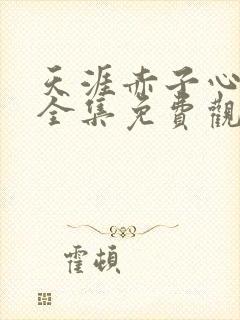 天涯赤子心
全集免費觀
霍頓